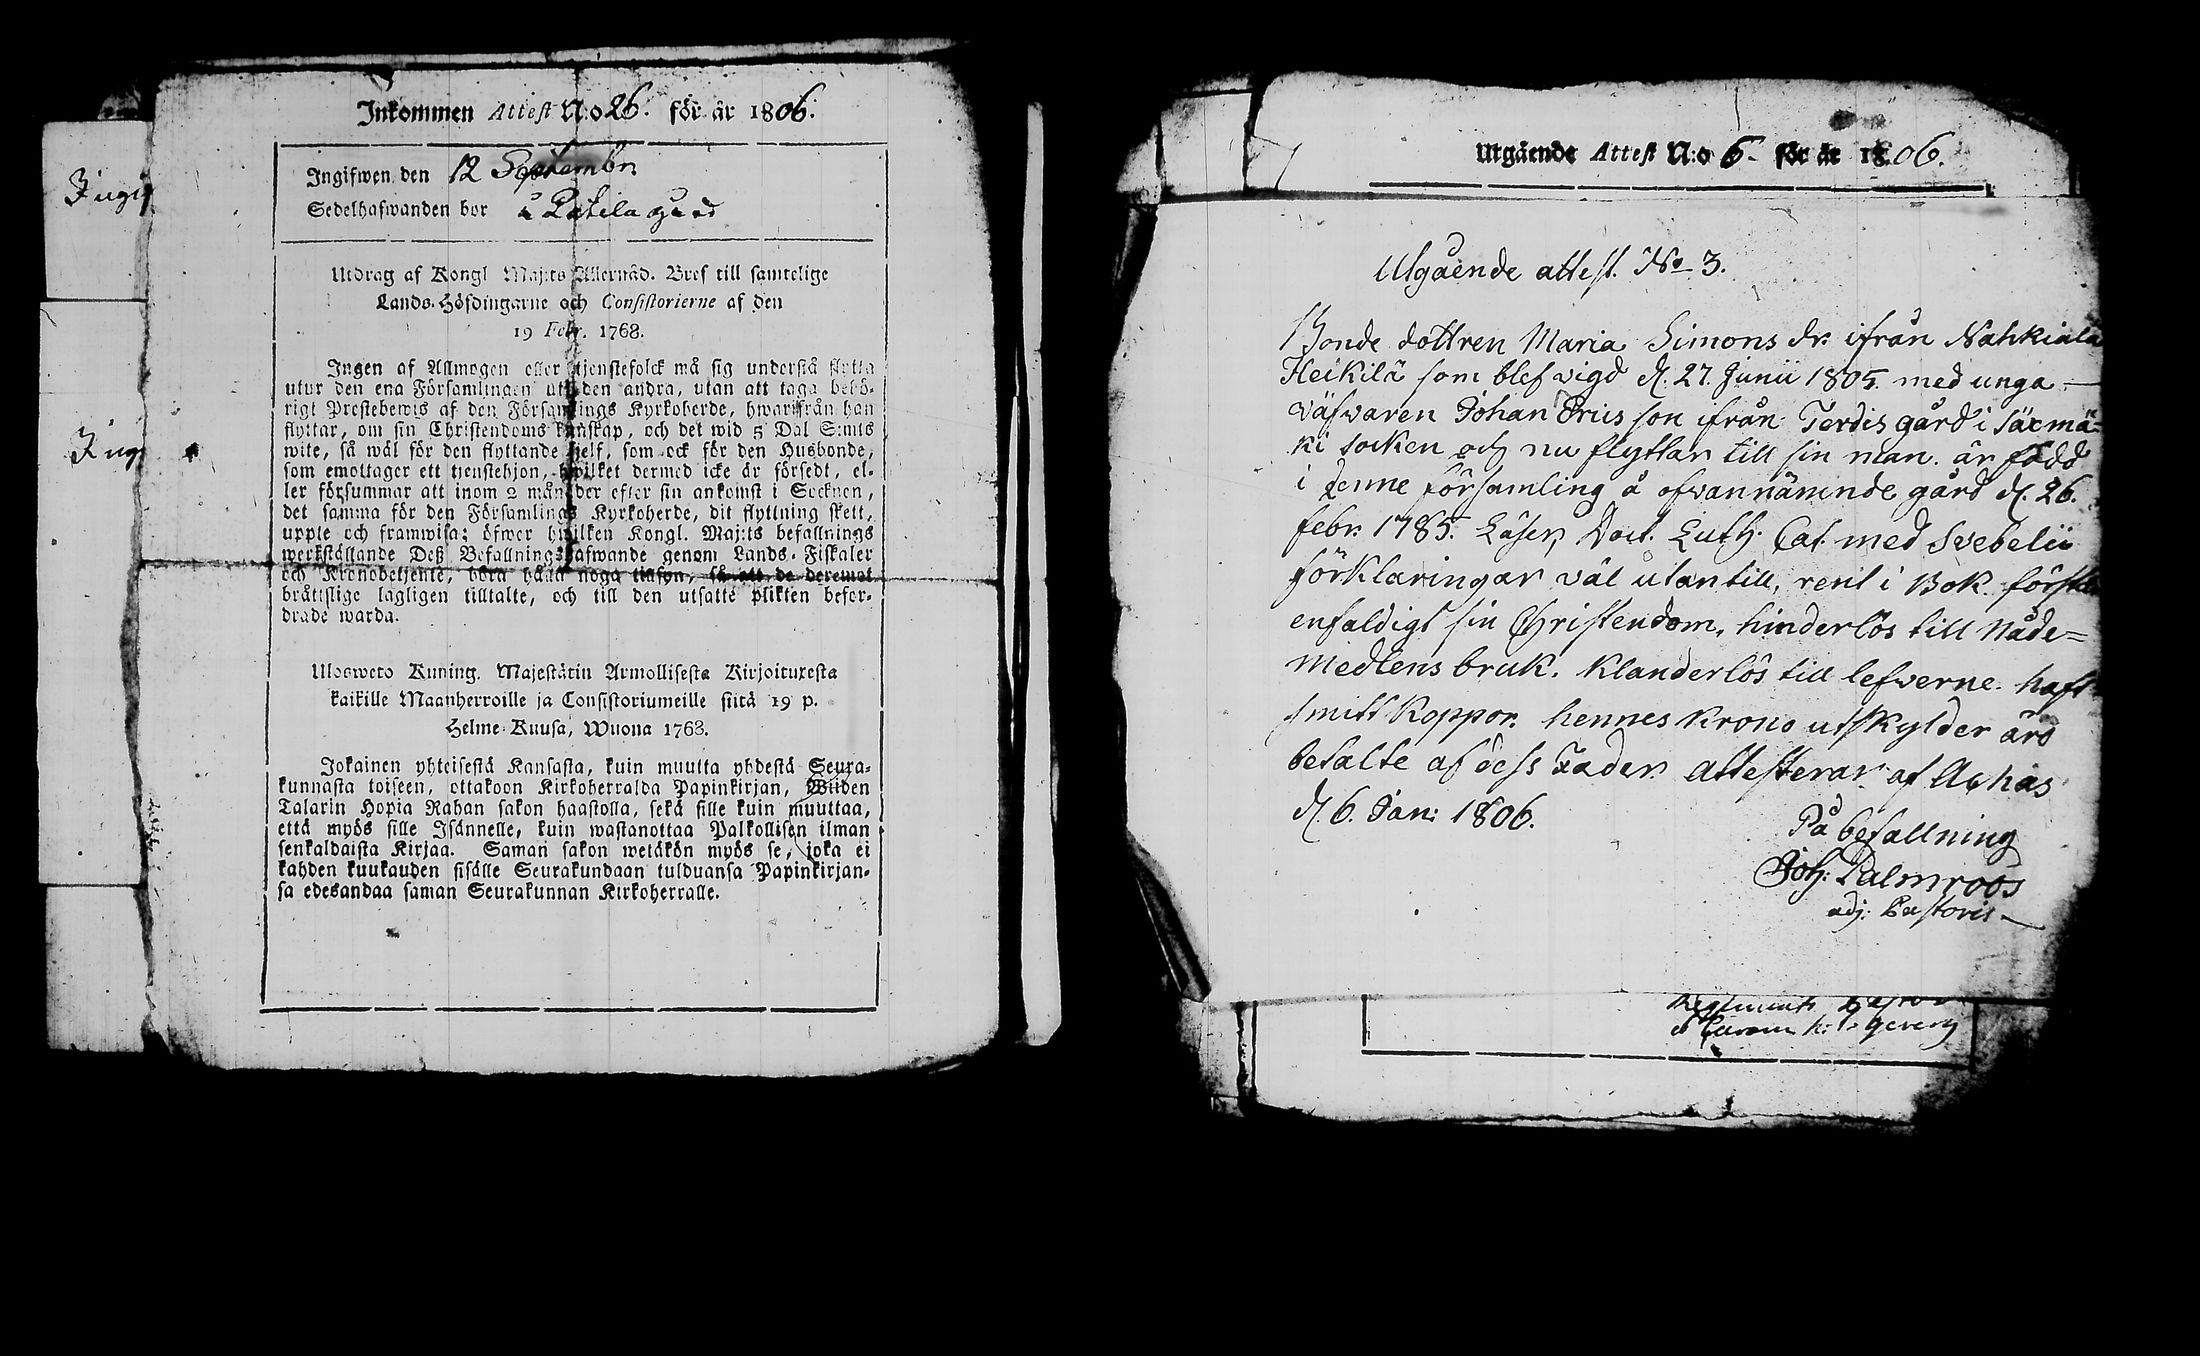 Inkommen Attest N:o 26. för år 1806.
Ingifwen den 12 Septembr
Sedelhafwanden bor
Utdrag af Kongl Maj:ts Allernåd. Bref till samtelige
Lands-Höfdingarne och Consistorierne af den
19 Febr. 1768.
Ingen af Allmogen eller tjenstefolck må sig understå flytta
utur den ena Församlingen uti den andra, utan att taga behö-
rigt Prestebewis af den Församlings Kyrkoherde, hwarifrån han
flyttar, om sin Christendoms kunskap, och det wid 5 Dal S:mts
wite, så wäl för den flyttande sielf, som ock för den Husbonde,
som emottager ett tjenstehjon, hwilket dermed icke är försedt, el-
ler försummar att inom 2 månader efter sin ankomst i Socknen,
det samma för den Församlings Kyrkoherde, dit flyttning skett,
uppte och framwisa; öfwer hwilken Kongl. Maj:ts befallnings
werkställande Deß Befallningshafwande genom Lands-Fiskaler
och Kronobetjente, böra hålla noga tillsyn, så att de deremot
bråttslige lagligen tilltalte, och till den utsatte plikten befor-
drade warda.
Ulosweto Kuning. Majestätin Armollisesta Kirjoituxesta
kaikille Maanherroille ja Consistoriumeille siitä 19 p.
Helme-Kuusa, Wuona 1768.
Jokainen yhteisestä Kansasta, kuin muutta yhdestä Seura-
kunnasta toiseen, ottakoon Kirkoherralda Papinkirjan, Wiiden
Talarin Hopia Rahan sakon haastolla, sekä sille kuin muuttaa,
että myös sille Isännelle, kuin wastanottaa Palkollisen ilman
senkaldaista Kirjaa. Saman sakon wetäkön myös se, joka ei
kahden kuukauden sisälle Seurakundaan tulduansa Papinkirjan-
sa edesandaa saman Seurakunnan Kirkoherralle.
Utgående Attest N:o 6. för år 1806.
Utgående attest. No 3.
Bonde dottren Maria Simons dr. ifrån Nahkiala
Heikilä som blef vigd d. 27. Junii 1805. med unga
väfvaren Johan Ericsson ifrån Terdis gård i Säxmä=
ki socken och nu flyttar till sin man. är född
i denne församling å ofvannämnde gård d. 26.
febr. 1785. Läser Doct. Luth. Cat. med Svebelii
förklaringar väl utantill, rent i Bok. förstår
enfaldigt sin Christendom, hinderlös till Nåde=
medlens bruk. Klanderlös till lefverne. haft
smitt Koppor. hennes krono utskylder äro
betalte af dess Fader. attesterar af Achas
d. 6. Jan: 1806.
På befallning
Joh: Palmroos
adj: Pastoris